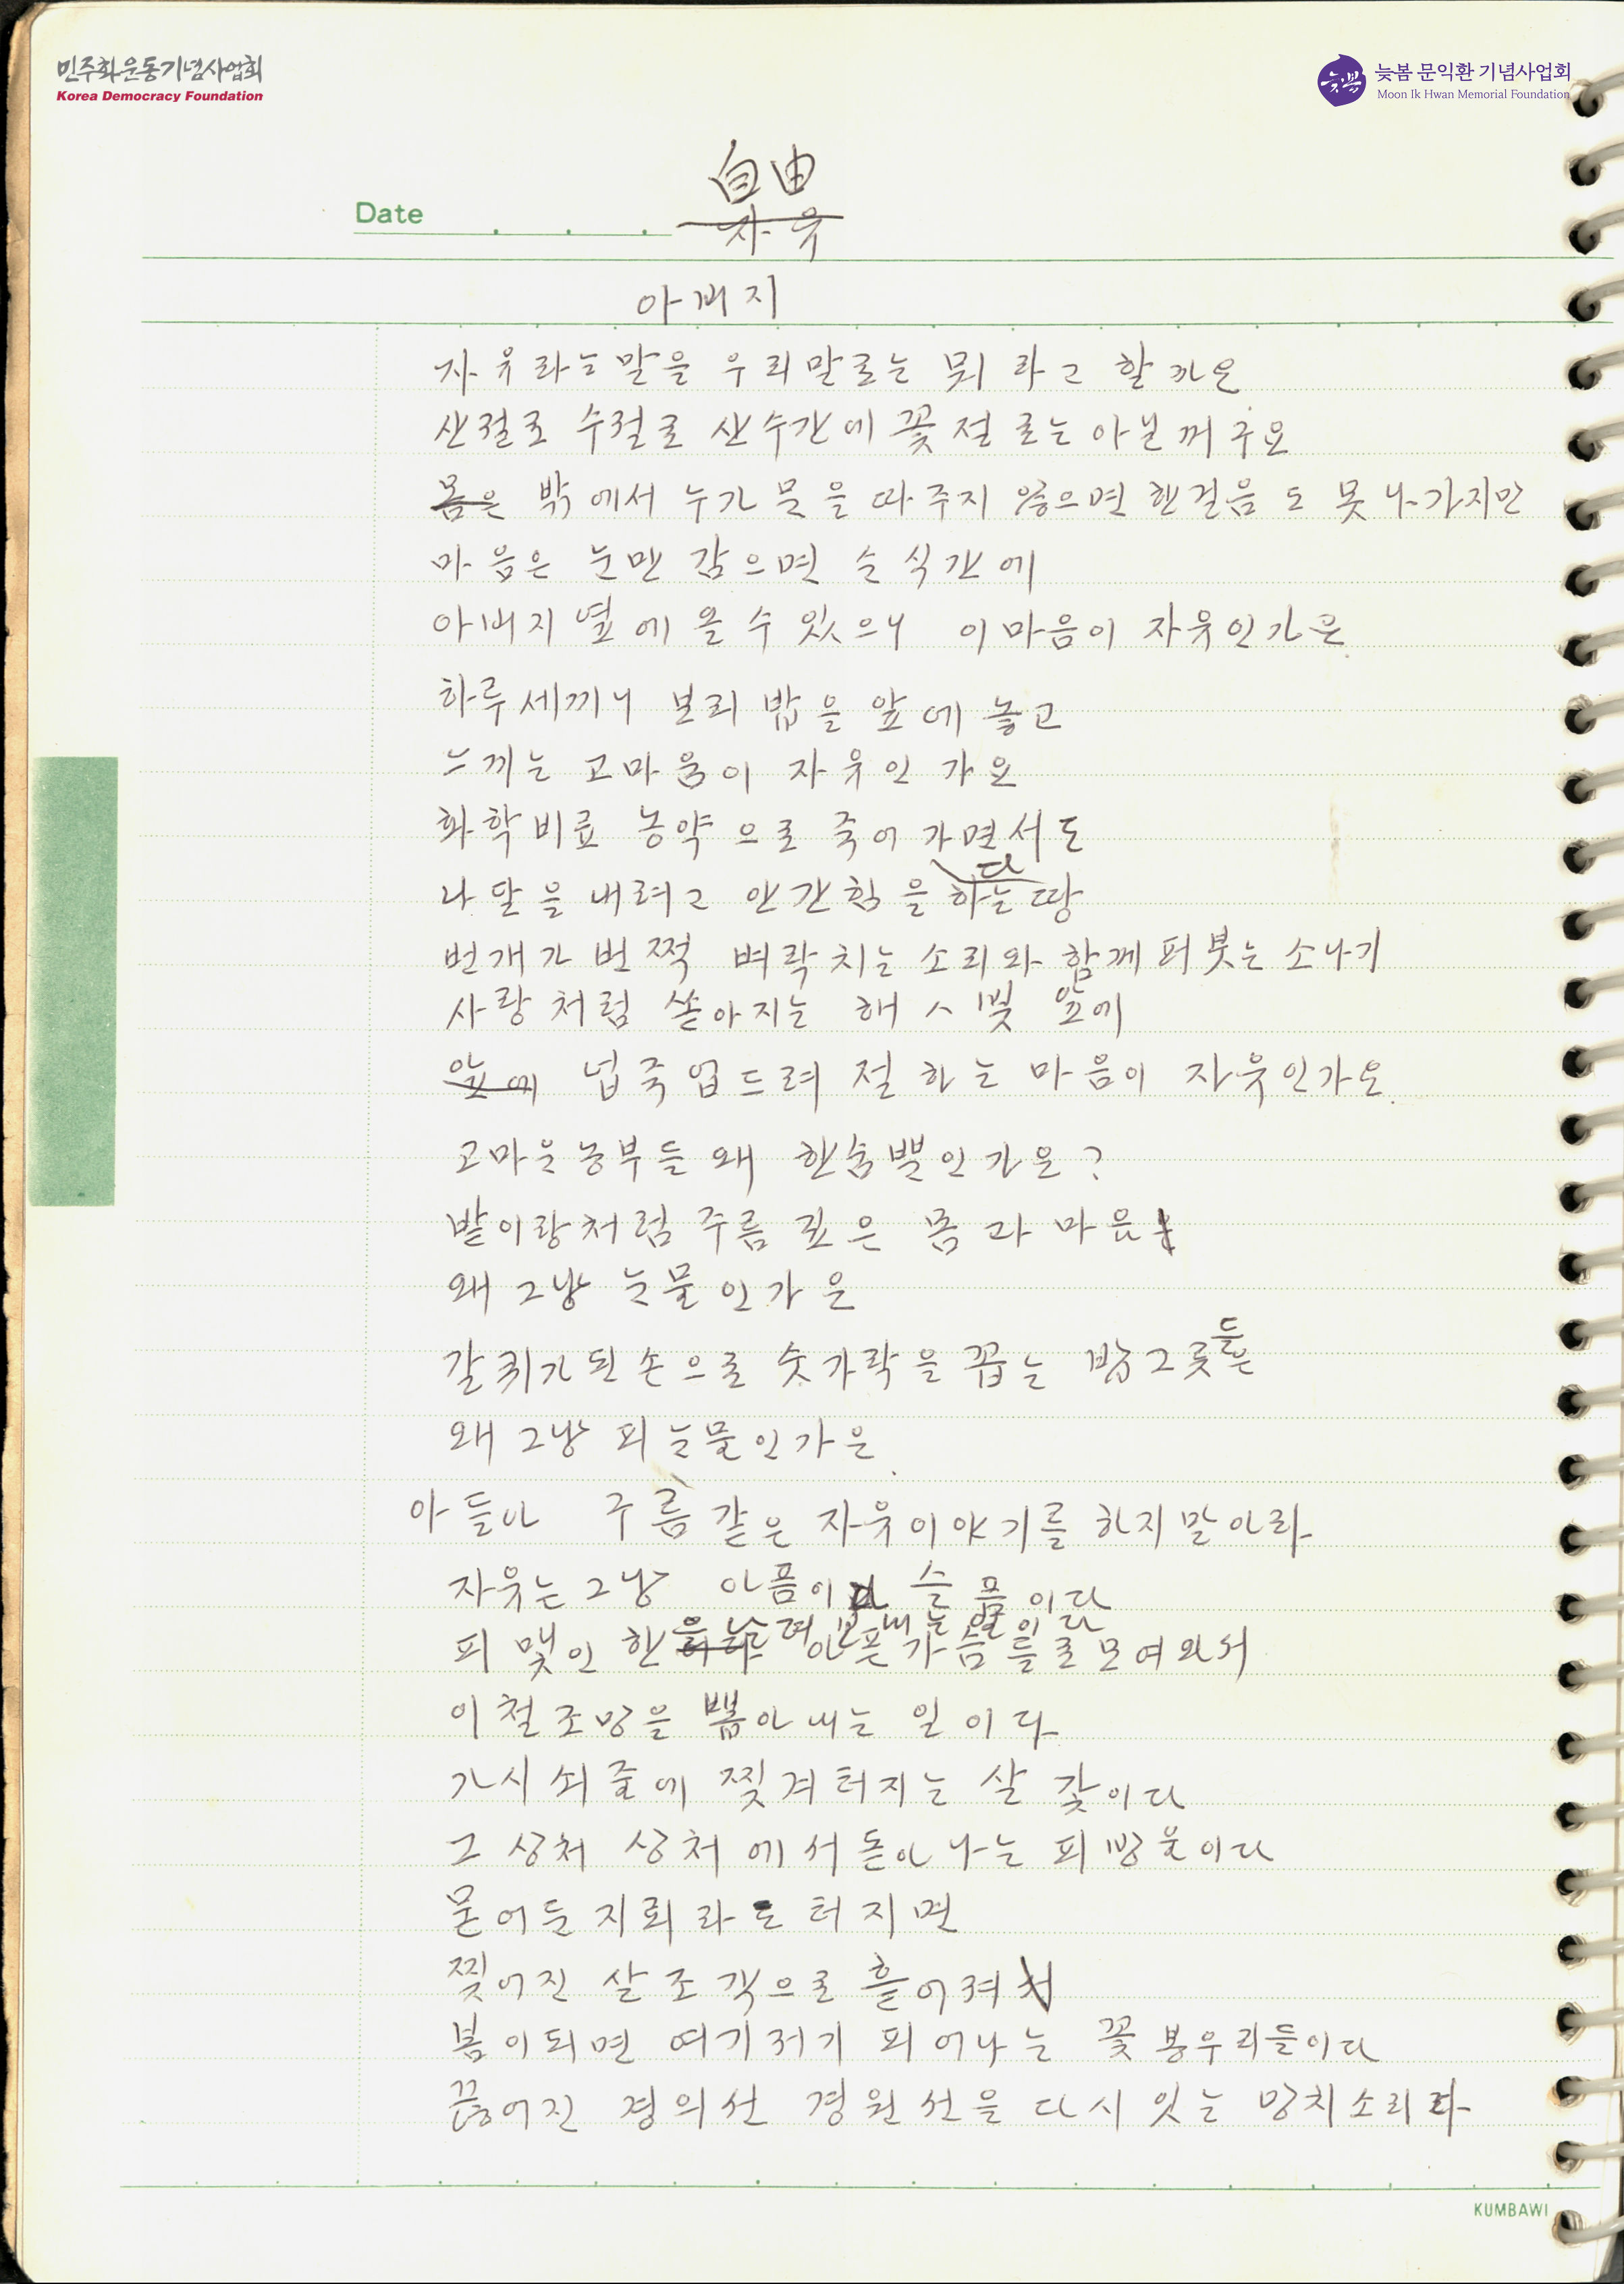 민주화운동기념사업회
Korea Democracy Foundation
늦봄 문익환 기념사업회
Moon Ik Hwan Memorial Foundation
늦봄
自由
Date
자유
아버지
자유라는 말을 우리말로는 뭐라고 할까요
산절로 수절로 산수간에 꽃절로는 아닐꺼구요
몸은 밖에서 누가 문을 따주지 않으면 한걸음도 못 나가지만
마음은 눈만 감으면 순식간에
아버지 옆에 올 수 있으니 이 마음이 자유인가요
하루 세끼니 보리밥을 앞에 놓고
느끼는 고마움이 자유인가요
화학비료 농약으로 죽어가면서도
다
나달을 내려고 안간힘을 하는 땅
번개가 번쩍 벼락치는 소리와 함께 퍼붓는 소나기
사랑처럼 쏟아지는 해ㅅ빛 앞에
앞에 넙죽 업드려 절하는 마음이 자유인가요
고마운 농부들 왜 한숨뿐인가요?
밭이랑처럼 주름 깊은 몸과 마음
왜 그냥 눈물인가요
들은
갈퀴가 된 손으로 숫가락을 꼽는 밥그릇
왜 그냥 피눈물인가요
아들아 구름같은 자유이야기를 하지말아라
자유는 그냥 아픔이다 슬픔이다
피 맺인 한 아픈 가슴들로 모여와서
이 철조망을 뽑아내는 일이다
가시쇠줄에 찢겨 터지는 살갗이다
그 상처 상처에서 돋아나는 피방울이다
묻어둔 지뢰라도 터지면
찢어진 살조각으로 흩어져
봄이되면 여기저기 피어나는 꽃봉우리들이다
끊어진 경의선 경원선을 다시 잇는 망치소리다
KUMBAWI